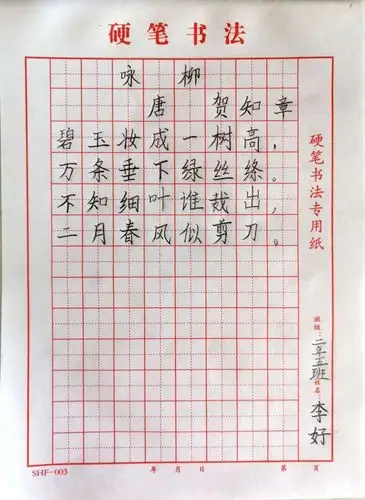 硬笔书法
咏柳
唐 贺知章
碧玉妆成一树高，
万条垂下绿丝绦。
不知细叶谁裁出，
二月春风似剪刀。
硬笔书法专用纸
班级：二年五班 姓名：李好
SHF-003 年 月 日 第 页